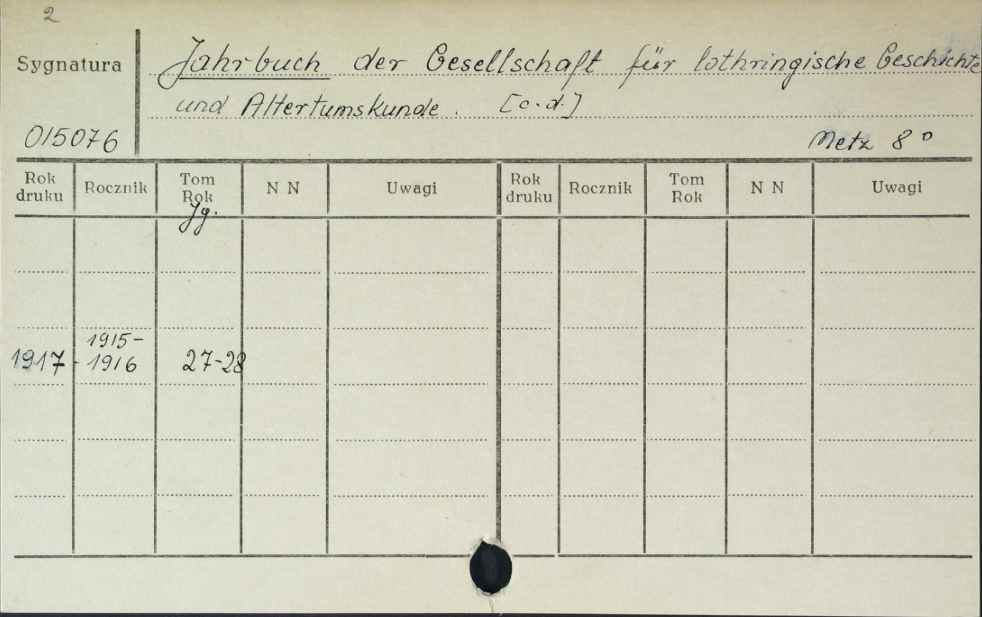 2
Sygnatura
Jahrbuch der Gesellschaft für lothringische Geschichte
und Altertumskunde. [c.d.]
015076
Metz 8°
Rok druku Rocznik Tom Rok N N Uwagi Rok druku Rocznik Tom Rok N N Uwagi
Jg.
1915-
1917 - 1916 27-28